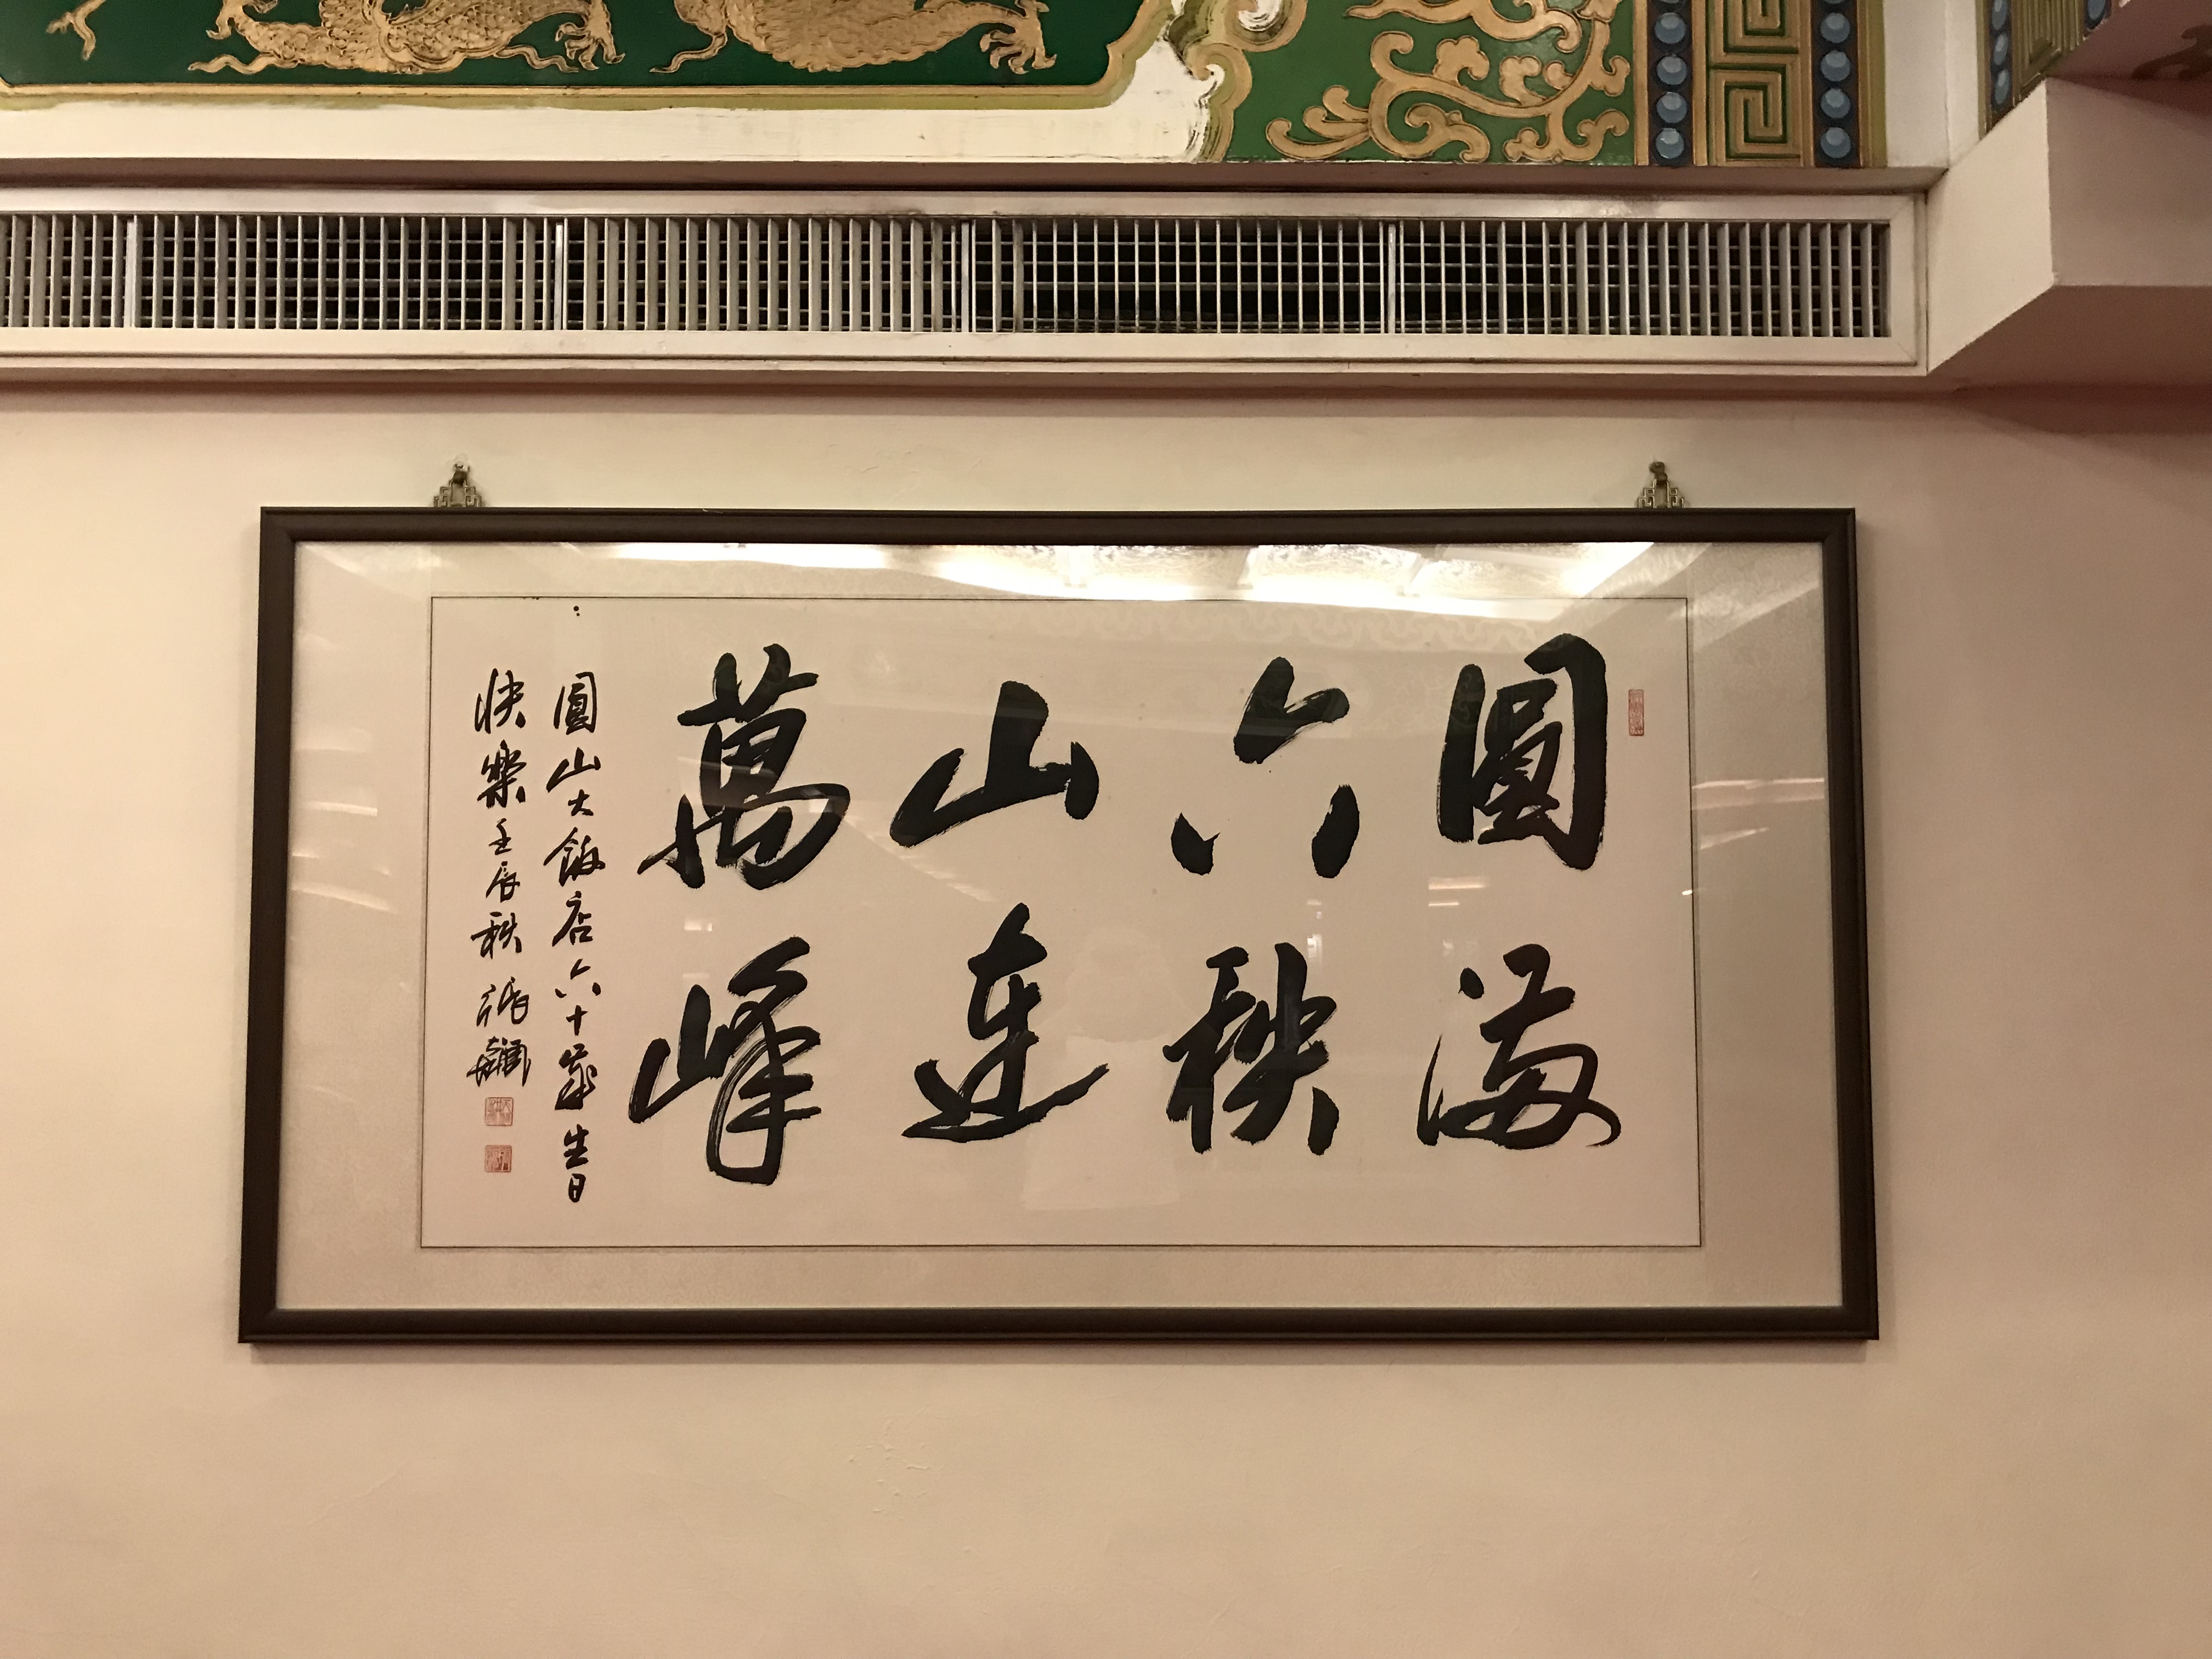 圓滿
六秩
山連
萬峰
圓山大飯店六十歲生日
快樂壬辰秋